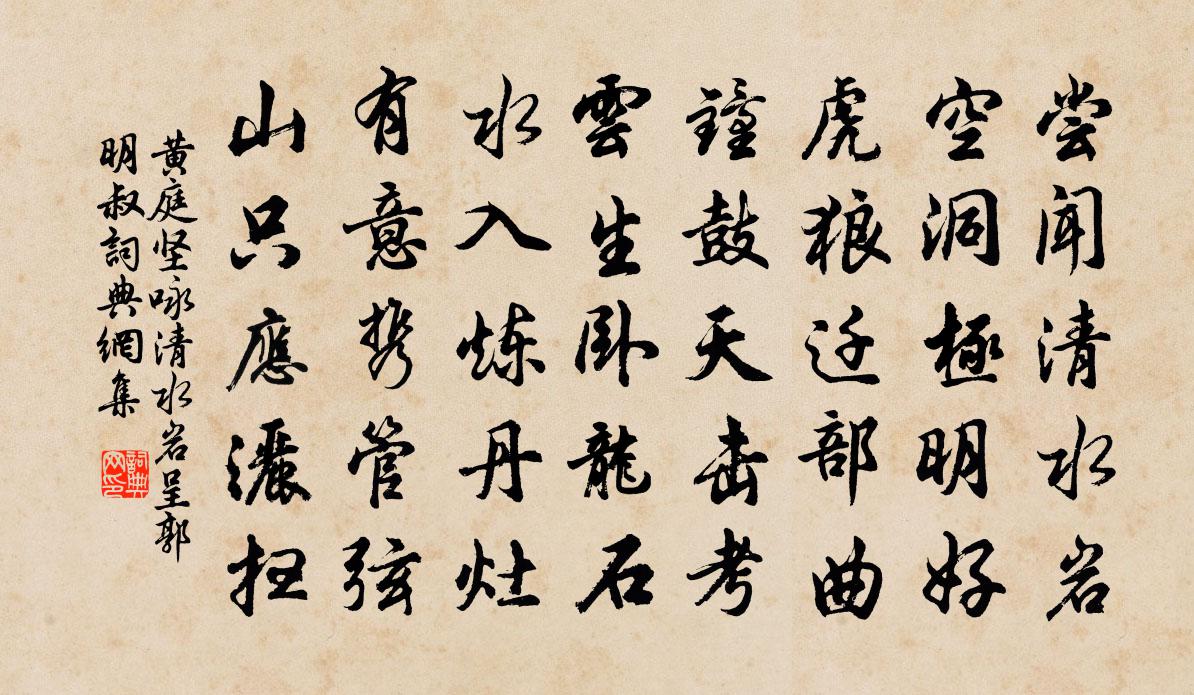 尝闻清水岩
空洞極明好
虎狼迁部曲
鐘鼓天击考
雲生卧龍石
水入炼丹灶
有意携管弦
山只應灑扫
黄庭坚咏清水岩呈郭
明叔詞典網集
詞典网印